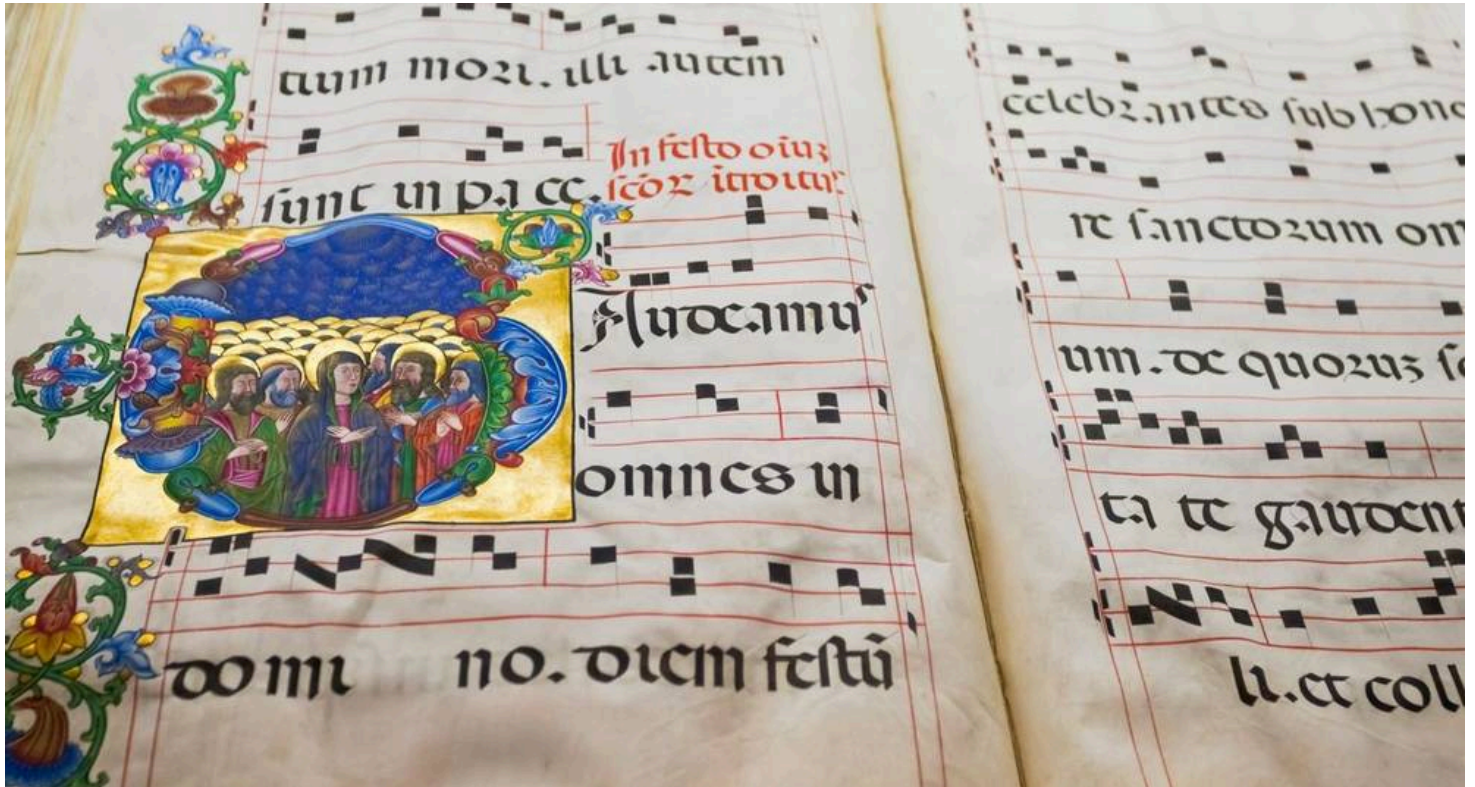 tium mori. illi autem
sunt in pa ce.
In festo oīuȝ
scōꝝ ītroituſ
Gaudeamus
omnes in
domi no. diem festū
celebrantes sub hono
re sanctorum om
um. de quoruȝ so
ta te gaudent
li. et coll